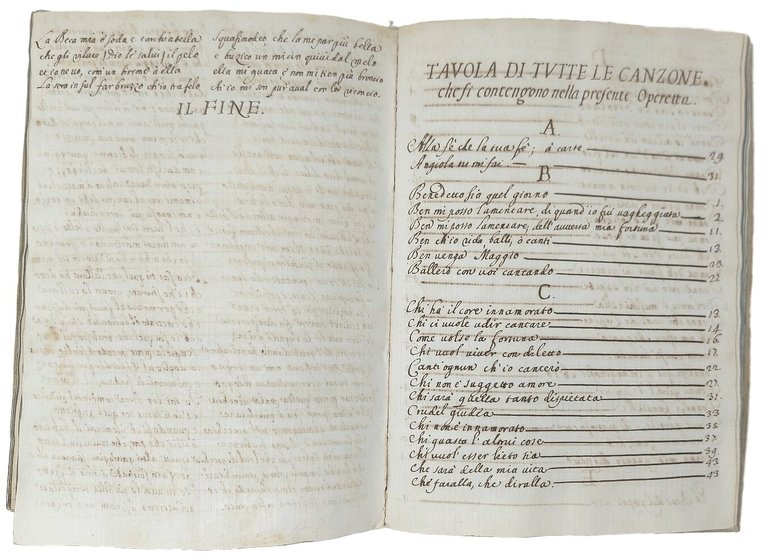 La Beca mia è soda e tarchiatella
che gli riluce Idio le salvi il pelo
La sera in sul far bruzzo ch'io trafelo
che la me par più bella
e buzico un micin quivi dal melo
ella mi guata e non mi tien più broncio
IL FINE.
TAVOLA DI TVTTE LE CANZONE.
che si contengono nella presente Operetta.
A
Alla fè che la tua fè; à carte 29
Angiola tu mi fai 31.
B
Benedetto sia quel giorno 1.
Ben mi posso lamentare, di quand'io fui vagheggiata 2.
Ben mi posso lamentare, dell'avversa mia fortuna 11.
Ben ch'io rida, balli, ò canti 13.
Ben venga Maggio 23.
Ballerò con voi cantando 22
C.
Chi hà il core innamorato 13.
Chi ci vuole udir cantare 14.
Come volse la fortuna 16.
Chi vuol viver con diletto 17.
Canti ognun ch'io canterò 22
Chi non è suggetto amore 27.
Chi sarà quella tanto dispietata 31.
Crudel giudea 33
Chi non è innamorato 35
Chi guasta l'altrui cose 37.
Chi vuol' esser lieto sia 39.
Che sarà della mia vita 43
Chè faralla, che diralla. 43